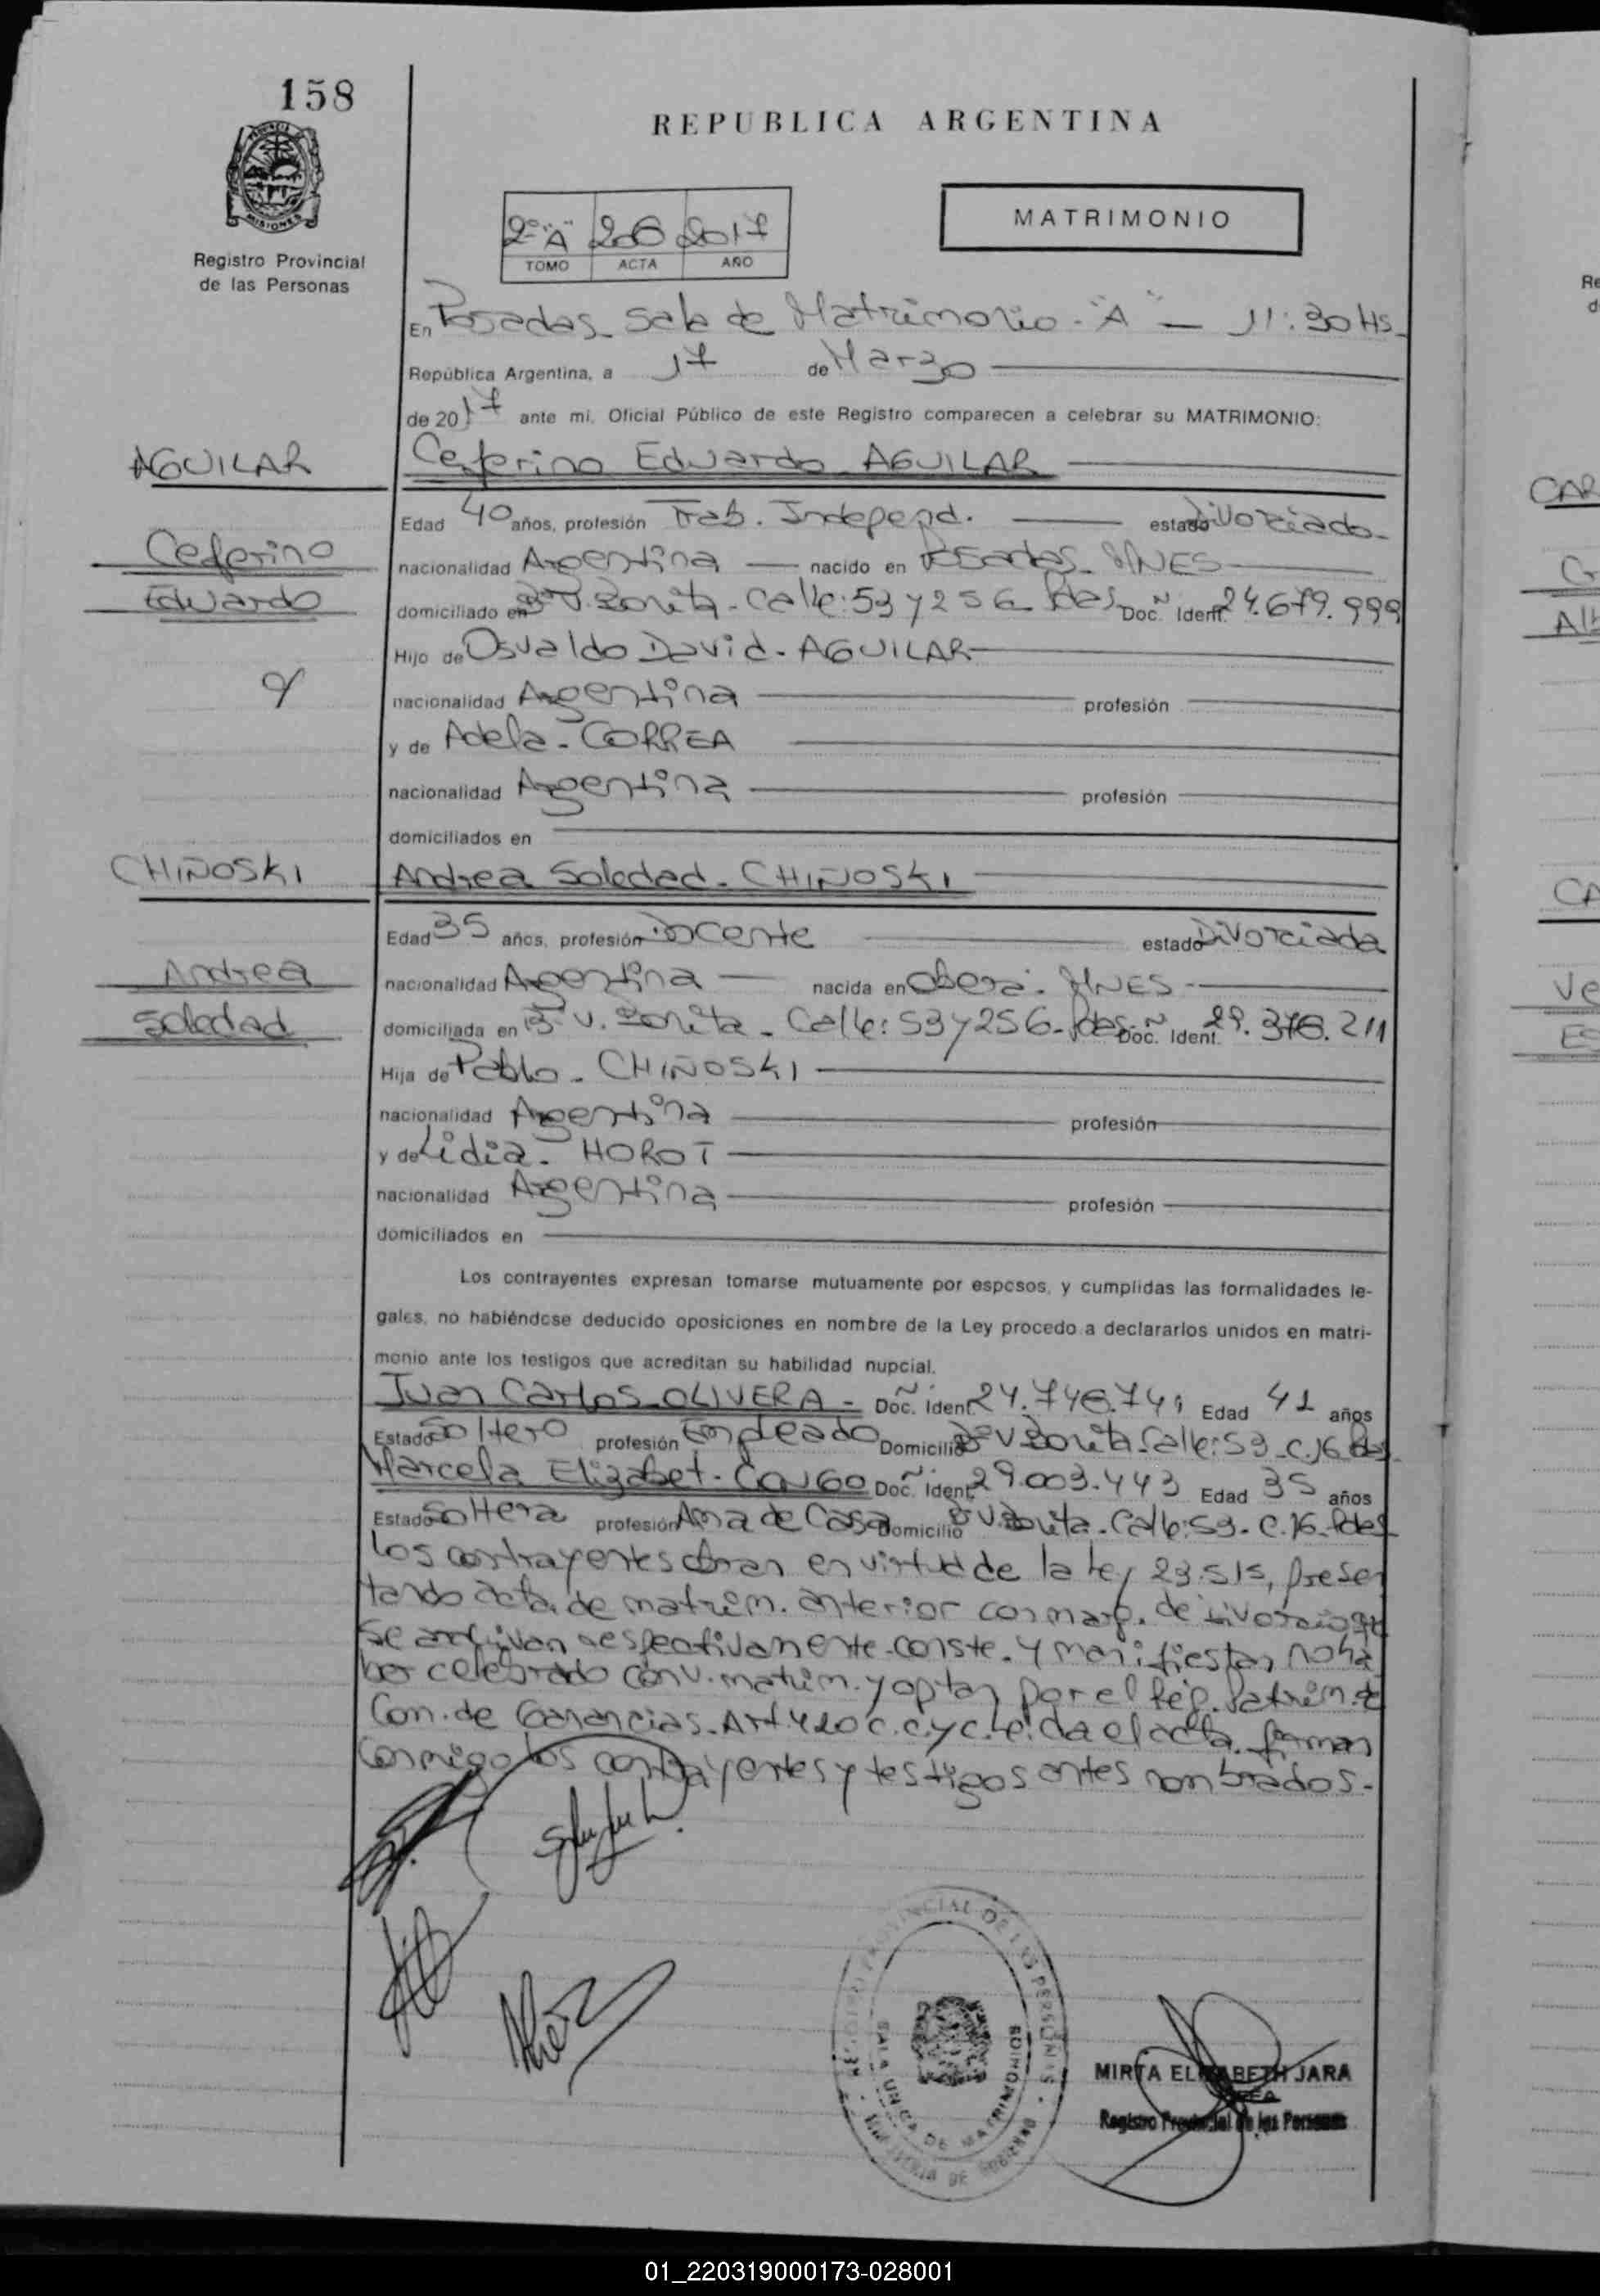 158
REPUBLICA ARGENTINA
PROVINCIA
MISIONES
Registro Provincial
de las Personas
MATRIMONIO
2º "A" 206 2017
TOMO ACTA AÑO
En Posadas Sala de Matrimonio - "A" - 11:30 Hs
República Argentina, a 17 de Marzo
de 2017 ante mi, Oficial Público de este Registro comparecen a celebrar su MATRIMONIO:
AGUILAR
Ceferino Eduardo AGUILAR
Edad 40 años, profesión Trab. Independ. estado Divorciado
Ceferino
nacionalidad Argentina nacido en Posadas MNES
Eduardo
domiciliado en Bº V. Bonita - Calle: 53 y 256 - Pdas Doc. Ident. 24.679.999
Hijo de Osvaldo David - AGUILAR
y
nacionalidad Argentina profesión
y de Adela - CORREA
nacionalidad Argentina profesión
domiciliados en
CHIÑOSKI
Andrea Soledad - CHIÑOSKI
Edad 35 años, profesión Docente estado Divorciada
Andrea
nacionalidad Argentina nacida en Oberá - MNES
Soledad
domiciliada en Bº V. Bonita - Calle: 53 y 256 - Pdas Doc. Ident. 29.376.211
Hija de Pablo - CHIÑOSKI
nacionalidad Argentina profesión
y de Lidia - HOROT
nacionalidad Argentina profesión
domiciliados en
Los contrayentes expresan tomarse mutuamente por esposos, y cumplidas las formalidades le-
gales, no habiéndose deducido oposiciones en nombre de la Ley procedo a declararlos unidos en matri-
monio ante los testigos que acreditan su habilidad nupcial.
Juan Carlos OLIVERA - Doc. Ident. Edad 41 años
Estado Soltero profesión Empleado Domicilio Bº V. Bonita Calle: 53 - C. 16 Pdas
Marcela Elizabet - CONGO Doc. Ident. 29.003.443 Edad 35 años
Estado Soltera profesión Ama de Casa Domicilio Bº V. Bonita - Calle: 53 - C. 16 - Pdas
Los contrayentes obran en virtud de la Ley 23.515, presen
tando acta de matrim. anterior con marg. de divorcio
Se archivan respectivamente conste. y manifiestan no ha
ber celebrado conv. matrim. y optan por el Rég. Patrim. de
Com. de Ganancias. Art. 420 C.C. y C. leida el acta firman
conmigo los contrayentes y testigos antes nombrados.
PROVINCIAL DE LAS PERSONAS
SALA UNICA DE MATRIMONIOS
MIRTA ELIZABETH JARA
Registro Provincial de las Personas
CAR
Re
d
CA
Ve
ES
01_220319000173-028001